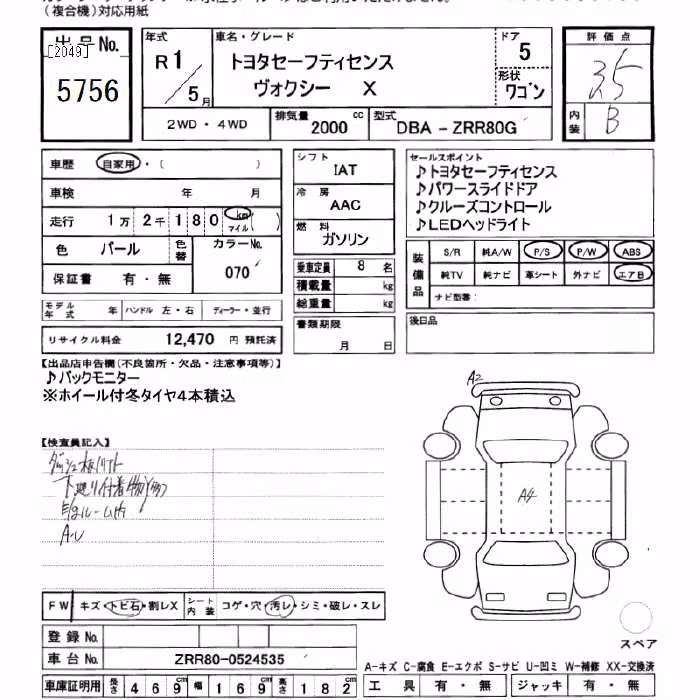 (複合機)対応用紙
出品No.
[2049]
5756
年式
R1/5月
車名・グレード
トヨタセーフティセンス
ヴォクシー X
ドア
5
形状
ワゴン
評価点
3.5
内装
B
2WD・4WD
排気量 2000 cc
型式 DBA-ZRR80G
車歴 自家用・( )
車検 年 月
走行 1万2千180 km マイル ( )
色 パール
色替
カラーNo.
070
保証書 有・無
モデル年式 年
ハンドル 左・右
ディーラー・並行
リサイクル料金 12,470 円 預託済
シフト
IAT
冷房
AAC
燃料
ガソリン
乗車定員 8 名
積載量 kg
総重量 kg
書類期限
月 日
セールスポイント
♪トヨタセーフティセンス
♪パワースライドドア
♪クルーズコントロール
♪LEDヘッドライト
装備品
S/R 純A/W P/S P/W ABS
純TV 純ナビ 革シート 外ナビ エアB
ナビ型番:
後日品
【出品店申告欄(不良箇所・欠品・注意事項等)】
♪バックモニター
※ホイール付冬タイヤ4本積込
【検査員記入】
A2
A4
FW キズ・トビ石・割レX
シート内装 コゲ・穴・汚レ・シミ・破レ・スレ
登録No.
車台No. ZRR80-0524535
スペア
A-キズ C-腐食 E-エクボ S-サビ U-凹ミ W-補修 XX-交換済
車庫証明用 長さ 469cm 幅 169cm 高さ 182cm
工具 有・無 ジャッキ 有・無